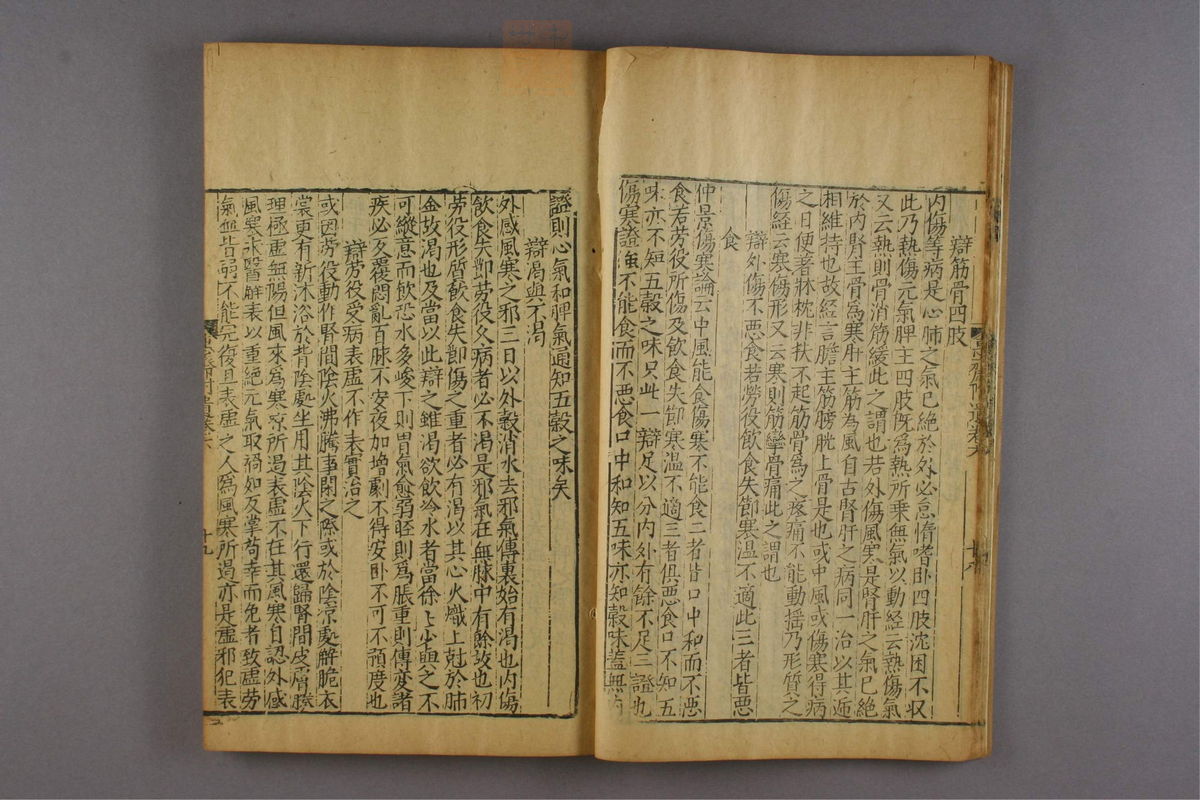 辯筋骨四肢
内傷等病是心肺之氣已絶於外必怠惰嗜卧四肢沈困不収
此乃熱傷元氣脾主四肢既爲熱所乗無氣以動經云熱傷氣
又云熱則骨消筋緩此之謂也若外傷風寒是腎肝之氣已絶
於内腎主骨爲寒肝主筋為風自古腎肝之病同一治以其逓
相維持也故經言膽主筋膀胱主骨是也或中風或傷寒得病
之日便著牀枕非扶不起筋骨爲之疼痛不能動揺乃形質之
傷経云寒傷形又云寒則筋攣骨痛此之謂也
辯外傷不悪食若勞役飲食失節寒温不適此三者皆悪
食
仲景傷寒論云中風能食傷寒不能食二者皆口中和而不悪
食若劳役所傷及飲食失節寒温不適三者俱悪食口不知五
味亦不知五穀之味只此一辯足以分内外有餘不足二證也
傷寒證雖不能食而不悪食口中和知五味亦知穀味蓋無内
證則心氣和脾氣通知五穀之味矣
辯渇與不渇
外感風寒之邪三日以外穀消水去邪氣傳裏始有渇也内傷
飲食失節劳役久病者必不渇是邪氣在血脉中有餘故也初
劳役形質飲食失節傷之重者必有渇以其心火熾上尅於肺
金故渇也及當以此辯之雖渇欲飲冷水者當徐上少與之不
可縱意而飲恐水多峻下則胃氣愈弱輕則爲脹重則傳変諸
疾必反覆悶亂百脉不安夜加増劇不得安卧不可不預度也
辯劳役受病表虚不作表實治之
或因劳役動作腎間陰火沸騰事閑之際或於陰凉處解脱衣
裳更有新沐浴於背陰處坐卧其陰火下行還歸腎間皮膚腠
理極虚無陽但風來爲寒凉所遏表虚不任其風寒自認外感
風寒求醫解表以重絶元氣取禍如反掌苟幸而免者致虚劳
氣血皆弱不能完復且表虚之人爲風寒所遏亦是虚邪犯表
十九